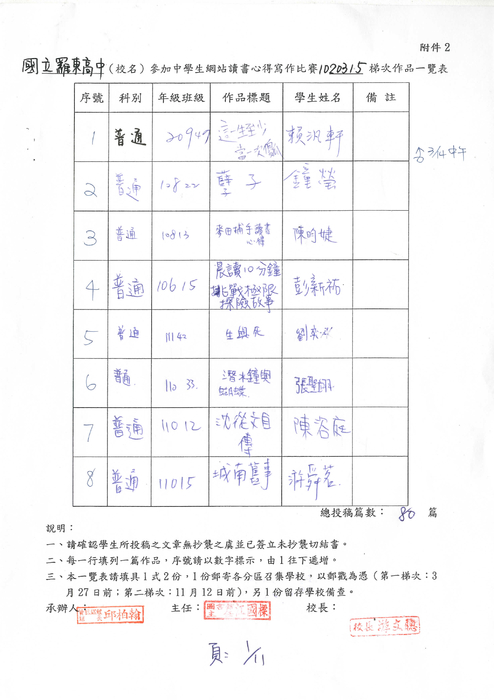 附件2
國立羅東高中(校名)參加中學生網站讀書心得寫作比賽1020315梯次作品一覽表
序號 科別 年級班級 作品標題 學生姓名 備註
1 普通 20947 這一生至少當一次傻瓜 賴汎軒
2 普通 10822 孽子 鐘瑩
3 普通 10813 麥田捕手讀書心得 陳昀婕
4 普通 10615 晨讀10分鐘挑戰極限探險故事 彭新祐
5 普通 11142 生與死
6 普通 11033 潛水鐘與蝴蝶
7 普通 11012 沈從文自傳 陳滄庭
8 普通 11015 城南舊事 游舜茗
總投稿篇數: 80 篇
說明:
一、請確認學生所投稿之文章無抄襲之虞並已簽立未抄襲切結書。
二、每一行填列一篇作品,序號請以數字標示,由1往下遞增。
三、本一覽表請填具1式2份,1份郵寄各分區召集學校,以郵戳為憑(第一梯次:3
月27日前;第二梯次:11月12日前),另1份留存學校備查。
承辦人: 邱柏翰 主任: 校長:
校長游文聰
頁: 1/11